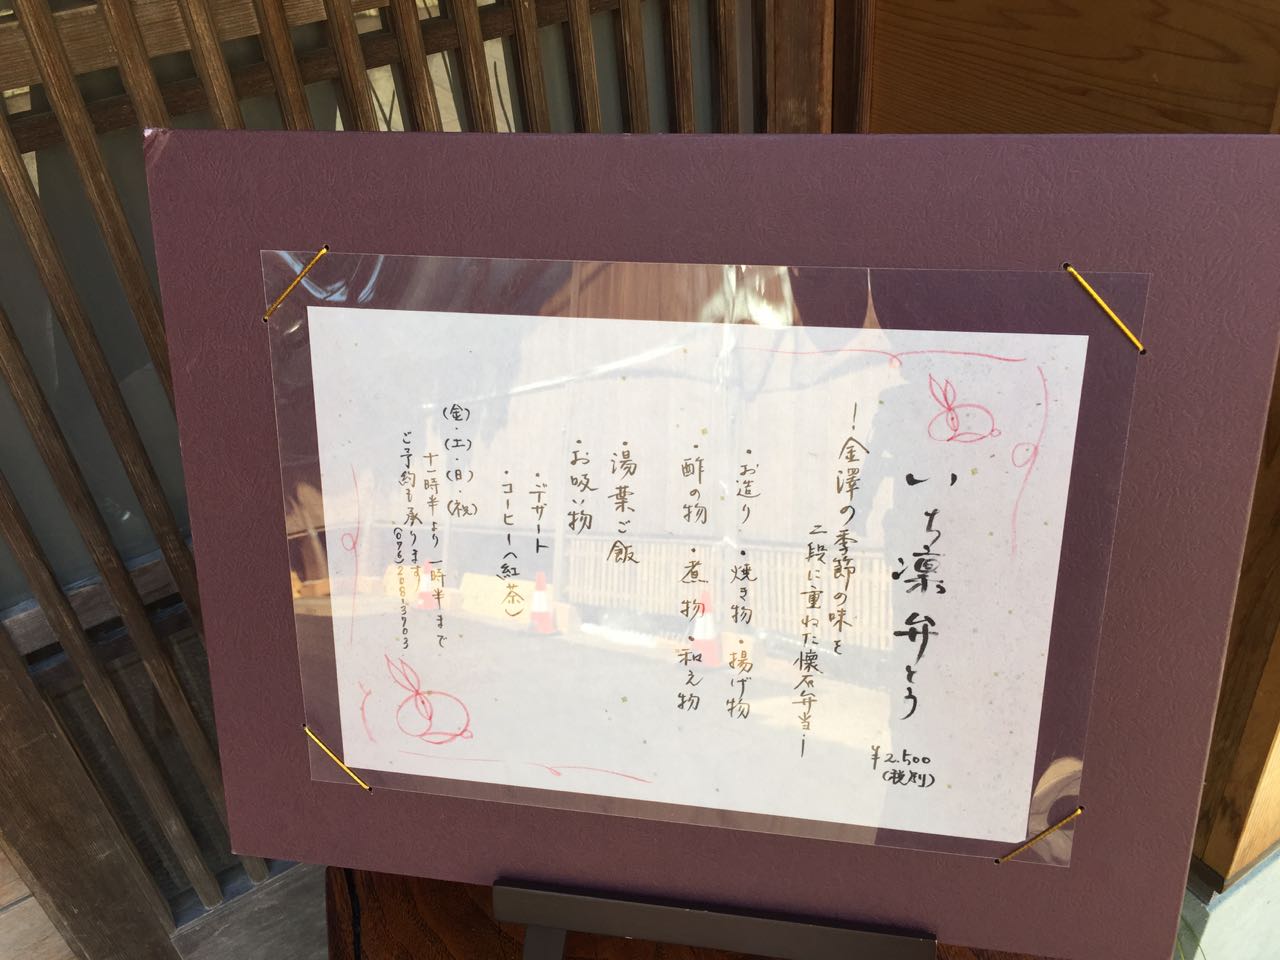 いち凛弁とう
¥2,500
(税別)
ー金澤の季節の味を
二段に重ねた懐石弁当ー
・お造り・焼き物・揚げ物
・酢の物・煮物・和え物
・湯葉ご飯
・お吸い物
・デザート
・コーヒー(紅茶)
(金)・(土)・(日)・(祝)
十一時半より一時半まで
ご予約も承ります(076)208-3703